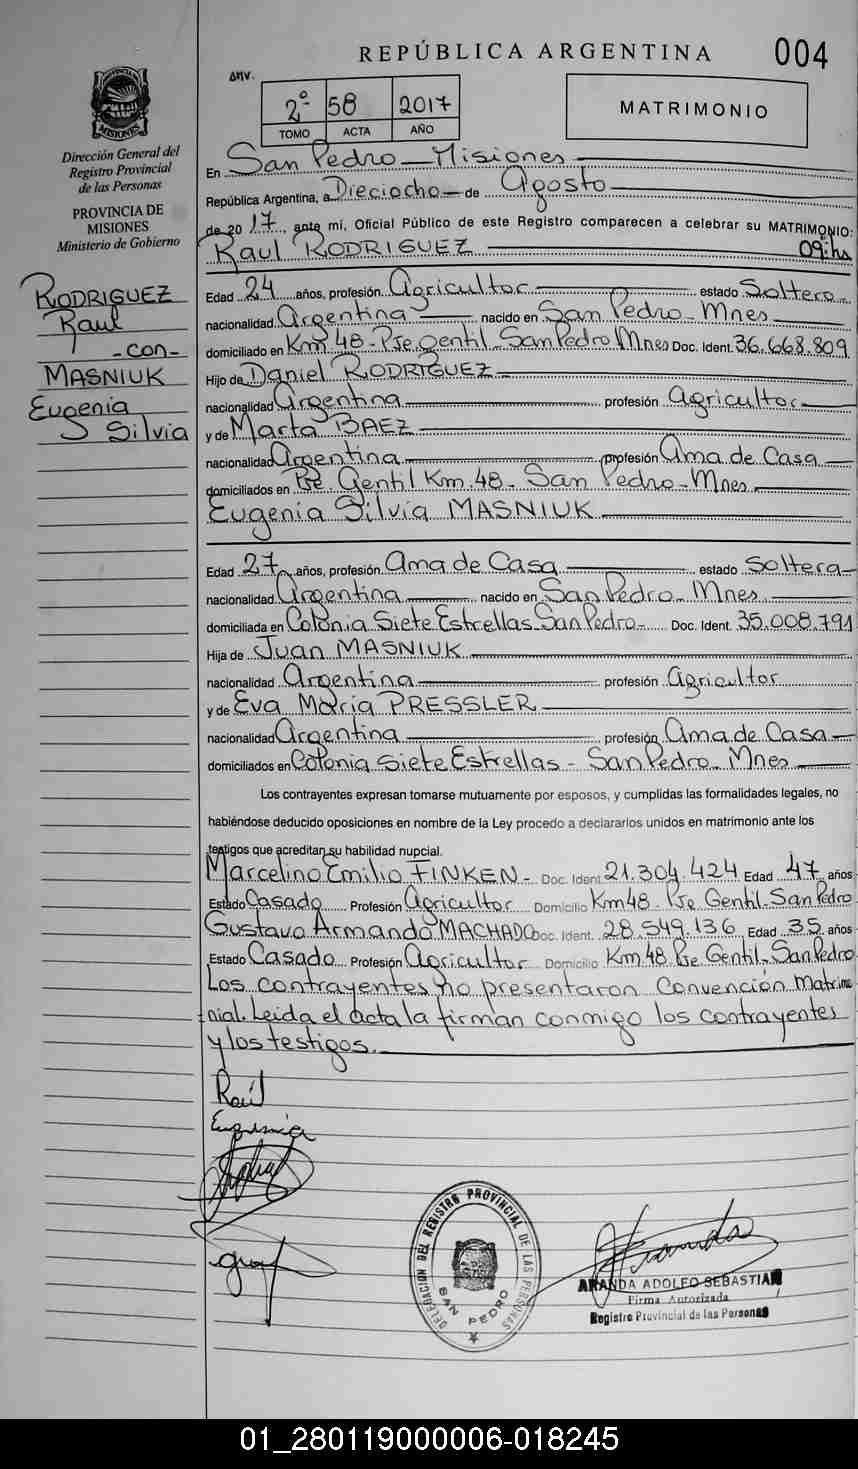 REPÚBLICA ARGENTINA
004
ANV.
2º 58 2017
TOMO ACTA AÑO
MATRIMONIO
MISIONES
Dirección General del
Registro Provincial
de las Personas
PROVINCIA DE
MISIONES
Ministerio de Gobierno
RODRIGUEZ
Raul
-con-
MASNIUK
Eugenia
Silvia
En San Pedro - Misiones
República Argentina, a Dieciocho de Agosto
de 20 17, ante mí, Oficial Público de este Registro comparecen a celebrar su MATRIMONIO:
Raul RODRIGUEZ 09:hs
Edad 24 años, profesión Agricultor estado Soltero
nacionalidad Argentina nacido en San Pedro - Mnes
domiciliado en Km 48 - Pje. Gentil - San Pedro Mnes Doc. Ident. 36.668.809
Hijo de Daniel RODRIGUEZ
nacionalidad Argentina profesión Agricultor
y de Marta BAEZ
nacionalidad Argentina profesión Ama de Casa
domiciliados en Pje Gentil Km. 48 - San Pedro - Mnes
Eugenia Silvia MASNIUK
Edad 27 años, profesión Ama de Casa estado Soltera
nacionalidad Argentina nacido en San Pedro - Mnes
domiciliada en Colonia Siete Estrellas San Pedro - Doc. Ident. 35.008.791
Hija de Juan MASNIUK
nacionalidad Argentina profesión Agricultor
y de Eva Maria PRESSLER
nacionalidad Argentina profesión Ama de Casa
domiciliados en Colonia Siete Estrellas - San Pedro - Mnes
Los contrayentes expresan tomarse mutuamente por esposos, y cumplidas las formalidades legales, no
habiéndose deducido oposiciones en nombre de la Ley procedo a declararlos unidos en matrimonio ante los
testigos que acreditan su habilidad nupcial.
Marcelino Emilio FINKEN - Doc. Ident. 21.304.424 Edad 47 años
Estado Casado Profesión Agricultor Domicilio Km 48 - Pje Gentil - San Pedro
Gustavo Armando MACHADO Doc. Ident. 28.549.136 Edad 35 años
Estado Casado Profesión Agricultor Domicilio Km 48 Pje Gentil - San Pedro
Los contrayentes no presentaron Convención Matrimo
nial. Leida el acta la firman conmigo los contrayentes
y los testigos.
Raúl
Eugenia
DELEGACION DEL REGISTRO PROVINCIAL DE LAS PERSONAS
SAN PEDRO
ARANDA ADOLFO SEBASTIAN
Firma Autorizada
Registro Provincial de las Personas
01_280119000006-018245